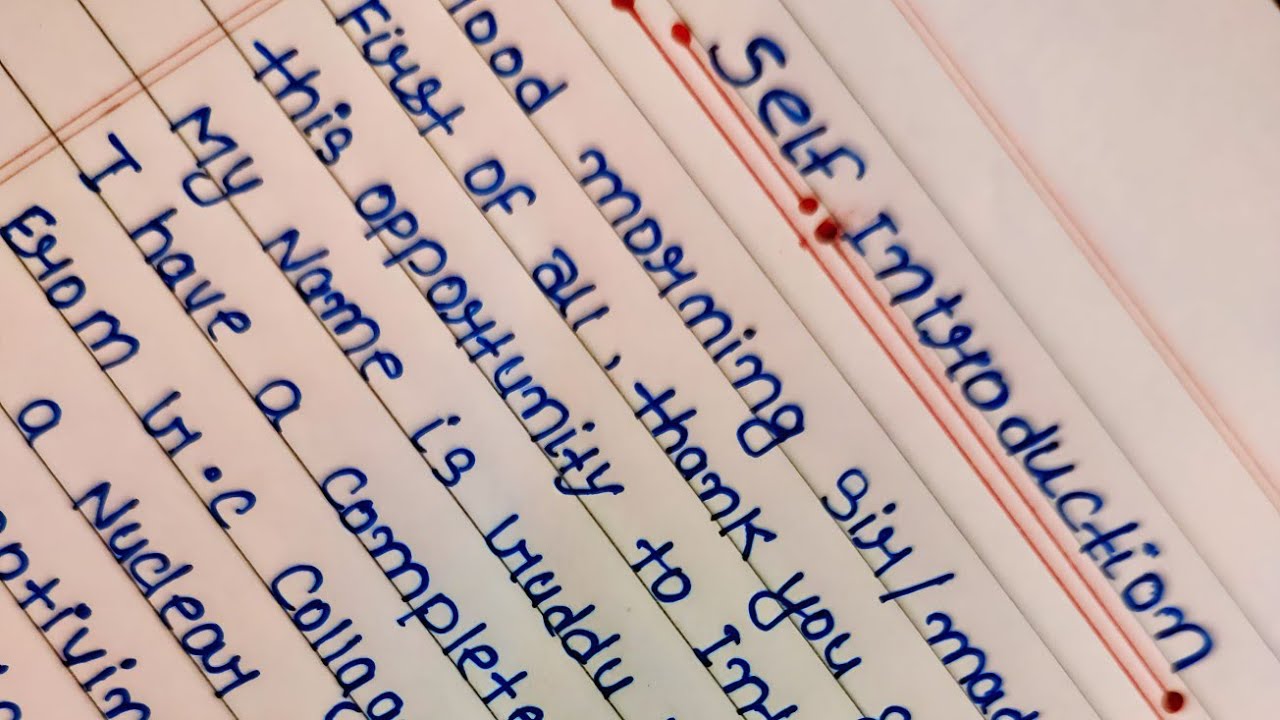 Self Introduction
ood morning Sir/mad
First of all, thank you
this opportunity to Int
My Name is
I have a Complete
From Collag
a Nuclear
ptivin